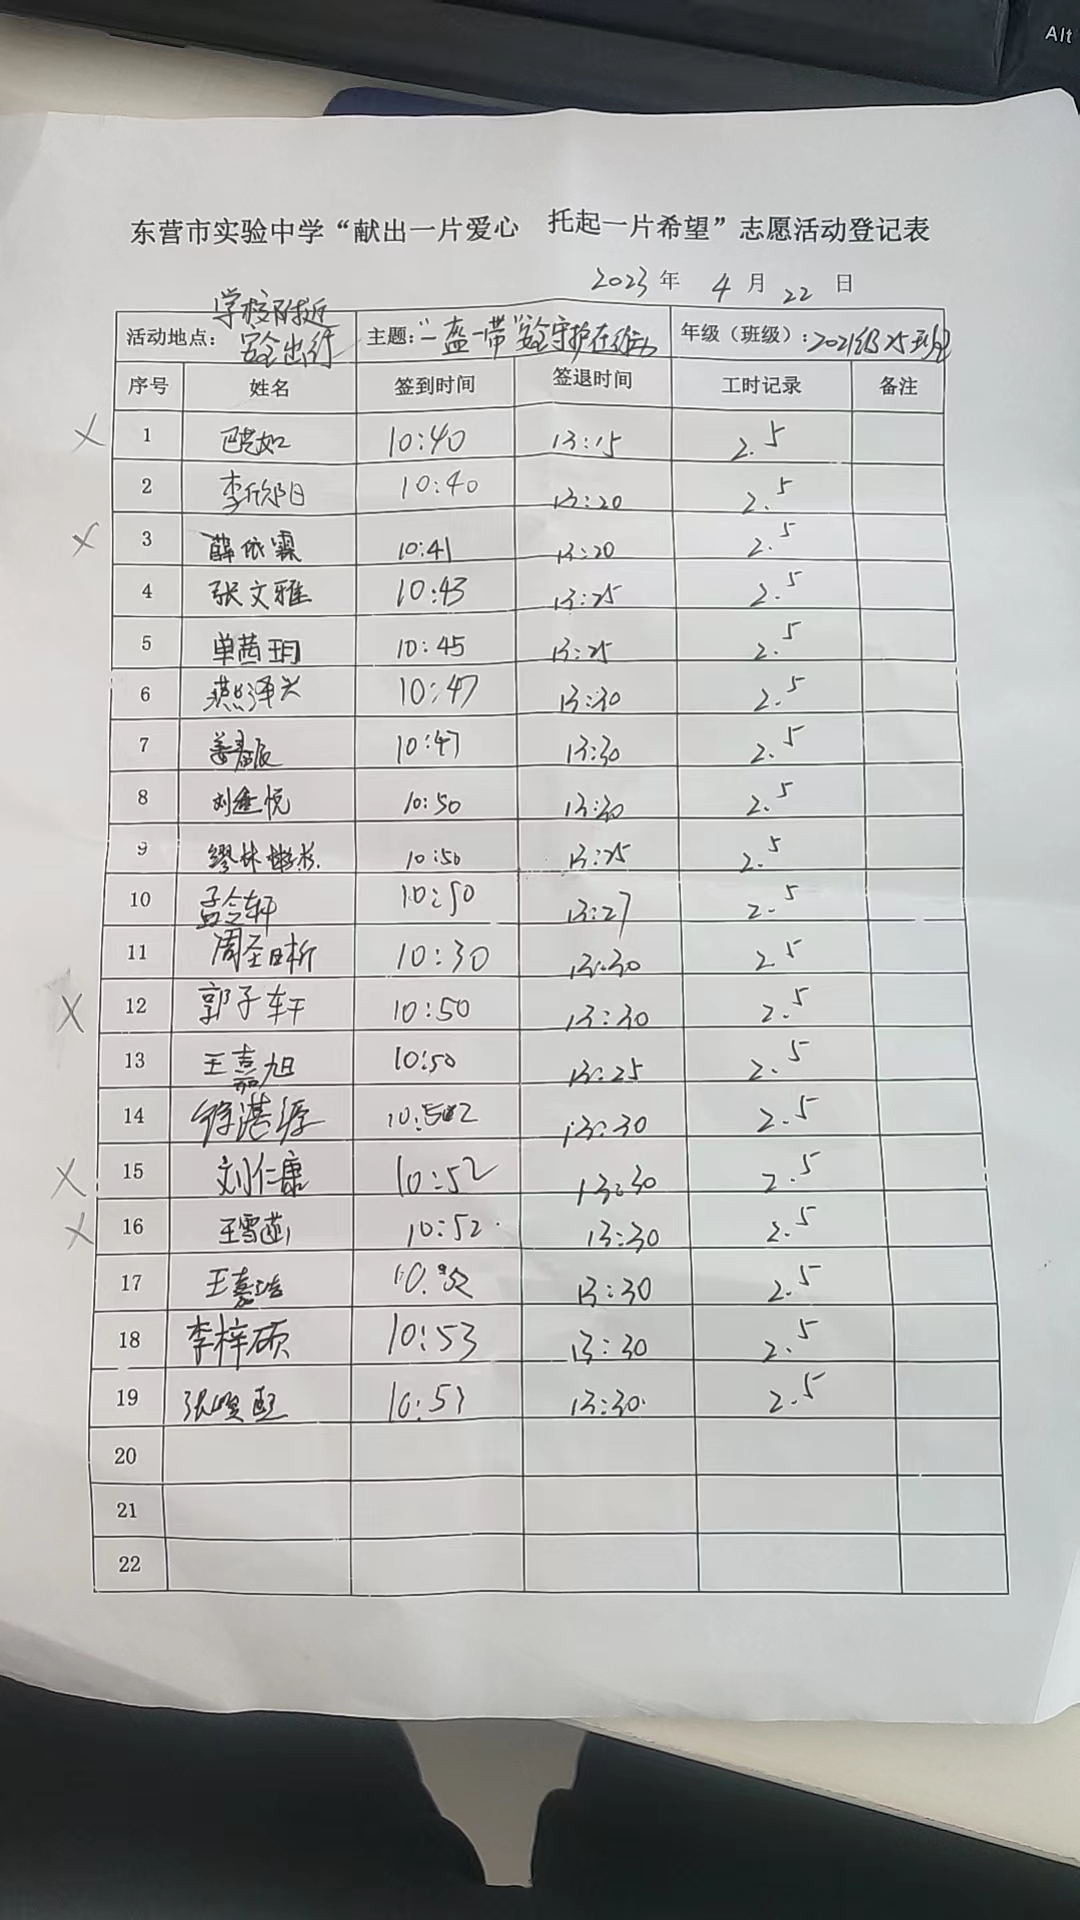 Alt
东营市实验中学“献出一片爱心 托起一片希望”志愿活动登记表
2023 年 4 月 22 日
活动地点：学校附近安全出行 主题：“一盔一带”安全守护在行动 年级（班级）：2021级25班
序号 姓名 签到时间 签退时间 工时记录 备注
X 1 10:40 13:15 2.5
2 李欣阳 10:40 13:20 2.5
X 3 薛依霖 10:41 13:20 2.5
4 张文雅 10:43 13:25 2.5
5 单茜玥 10:45 13:25 2.5
6 燕泽兴 10:47 13:30 2.5
7 姜春辰 10:47 13:30 2.5
8 刘鑫悦 10:50 13:30 2.5
9 缪林 10:50 13:25 2.5
10 孟令轩 10:50 13:27 2.5
11 周圣晰 10:30 13:30 2.5
X 12 郭子轩 10:50 13:30 2.5
13 王嘉旭 10:50 13:25 2.5
14 徐湛源 10:52 13:30 2.5
X 15 刘仁康 10:52 13:30 2.5
X 16 王雪 10:52 13:30 2.5
17 王嘉浩 10:52 13:30 2.5
18 李梓硕 10:53 13:30 2.5
19 张 10:53 13:30 2.5
20
21
22